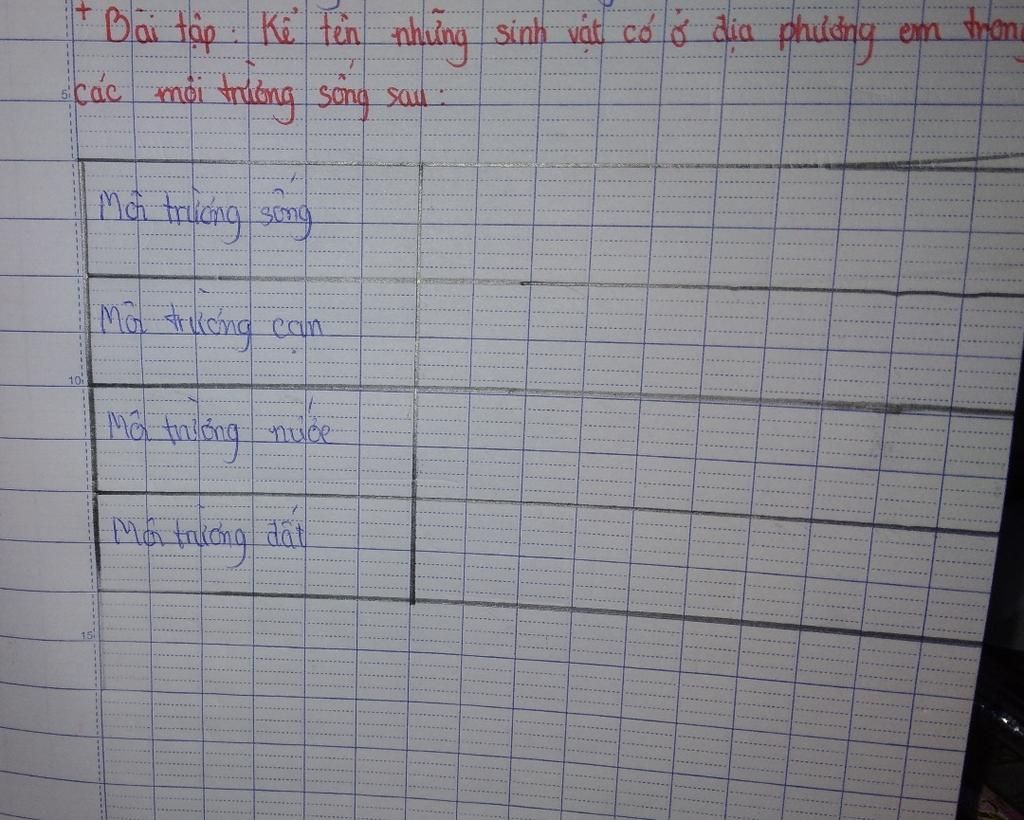 + Bài tập: Kể tên những sinh vật có ở địa phương em trong
5 các môi trường sống sau:
Môi trường sống
Môi trường cạn
10
Môi trường nước
Môi trường đất
15